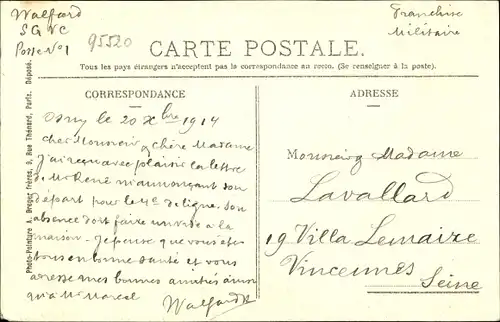 Walford
S G V C
Poste No 1
95520
Franchise
Militaire
CARTE POSTALE.
Tous les pays étrangers n'acceptent pas la correspondance au recto. (Se renseigner à la poste).
CORRESPONDANCE
ADRESSE
Photo-Peinture A. Breger frères, 9, Rue Thénard, Paris. Déposé.
le 20 Xbre 1914
cher Monsieur & chère Madame
j'ai reçu avec plaisir la lettre
de Mr René m'annonçant son
départ pour le 4e de ligne. son
absence doit faire un vide à la
maison. Je pense que vous êtes
tous en bonne santé et vous
adresse mes bonnes amitiés ainsi
qu'à Mr Marcel
Walford
Monsieur & Madame
Lavallard
19 Villa Lemaize
Vincennes
Seine